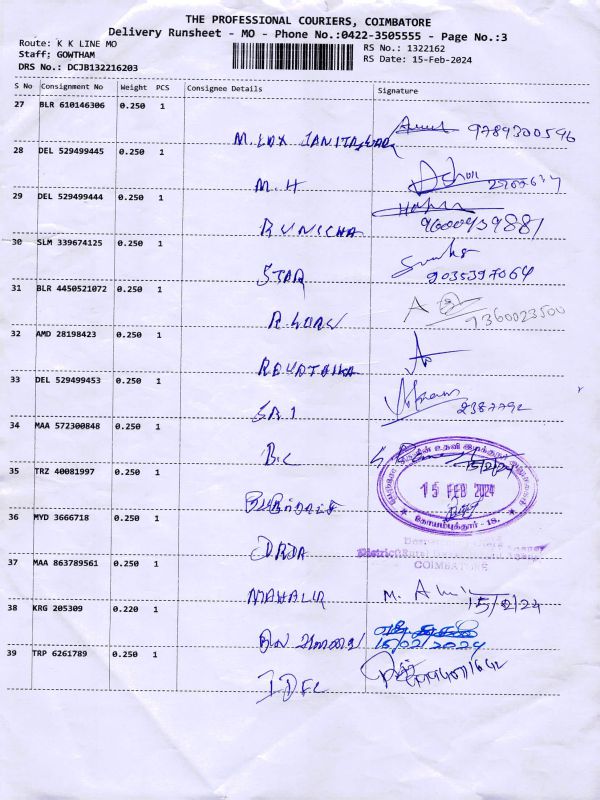 THE PROFESSIONAL COURIERS, COIMBATORE
Delivery Runsheet - MO - Phone No.:0422-3505555 - Page No.:3
Route: K K LINE MO
Staff; GOWTHAM
DRS No.: DCJB132216203
RS No.: 1322162
RS Date: 15-Feb-2024
S No Consignment No Weight PCS Consignee Details Signature
27 BLR 610146306 0.250 1
9789300596
28 DEL 529499445 0.250 1
M.H
29 DEL 529499444 0.250 1
RUNICHA 9600939881
30 SLM 339674125 0.250 1
STAR 9035397064
31 BLR 4450521072 0.250 1
9360023500
32 AMD 28198423 0.250 1
33 DEL 529499453 0.250 1
SRI 2387792
34 MAA 572300848 0.250 1
B.C 15/2/24
35 TRZ 40081997 0.250 1
15 FEB 2024
கோயம்புத்தூர் - 18.
36 MYD 3666718 0.250 1
DRDA
COIMBATORE
37 MAA 863789561 0.250 1
MAHALIR 15/2/24
38 KRG 205309 0.220 1
15/02/2024
39 TRP 6261789 0.250 1
IDFC